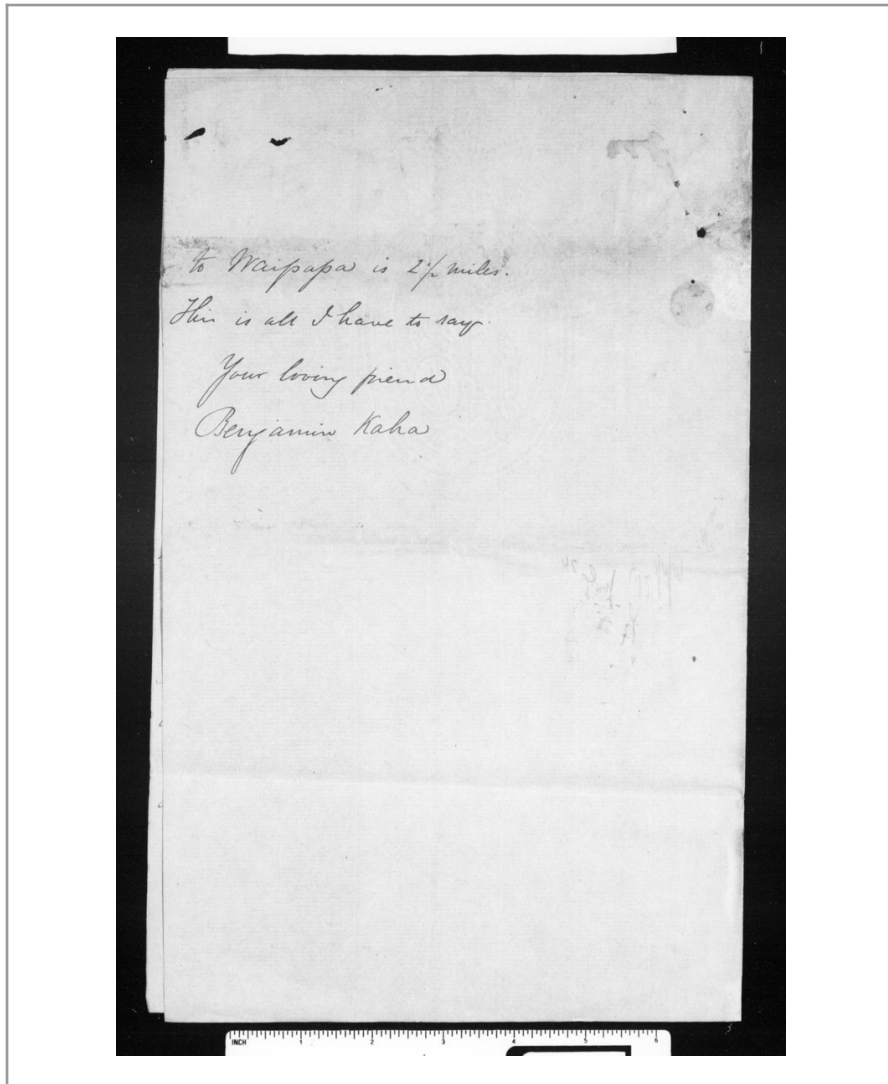 to Waipapa is 2½ miles.
This is all I have to say.
Your loving friend
Benjamin Kaha
INCH 1 2 3 4 5 6